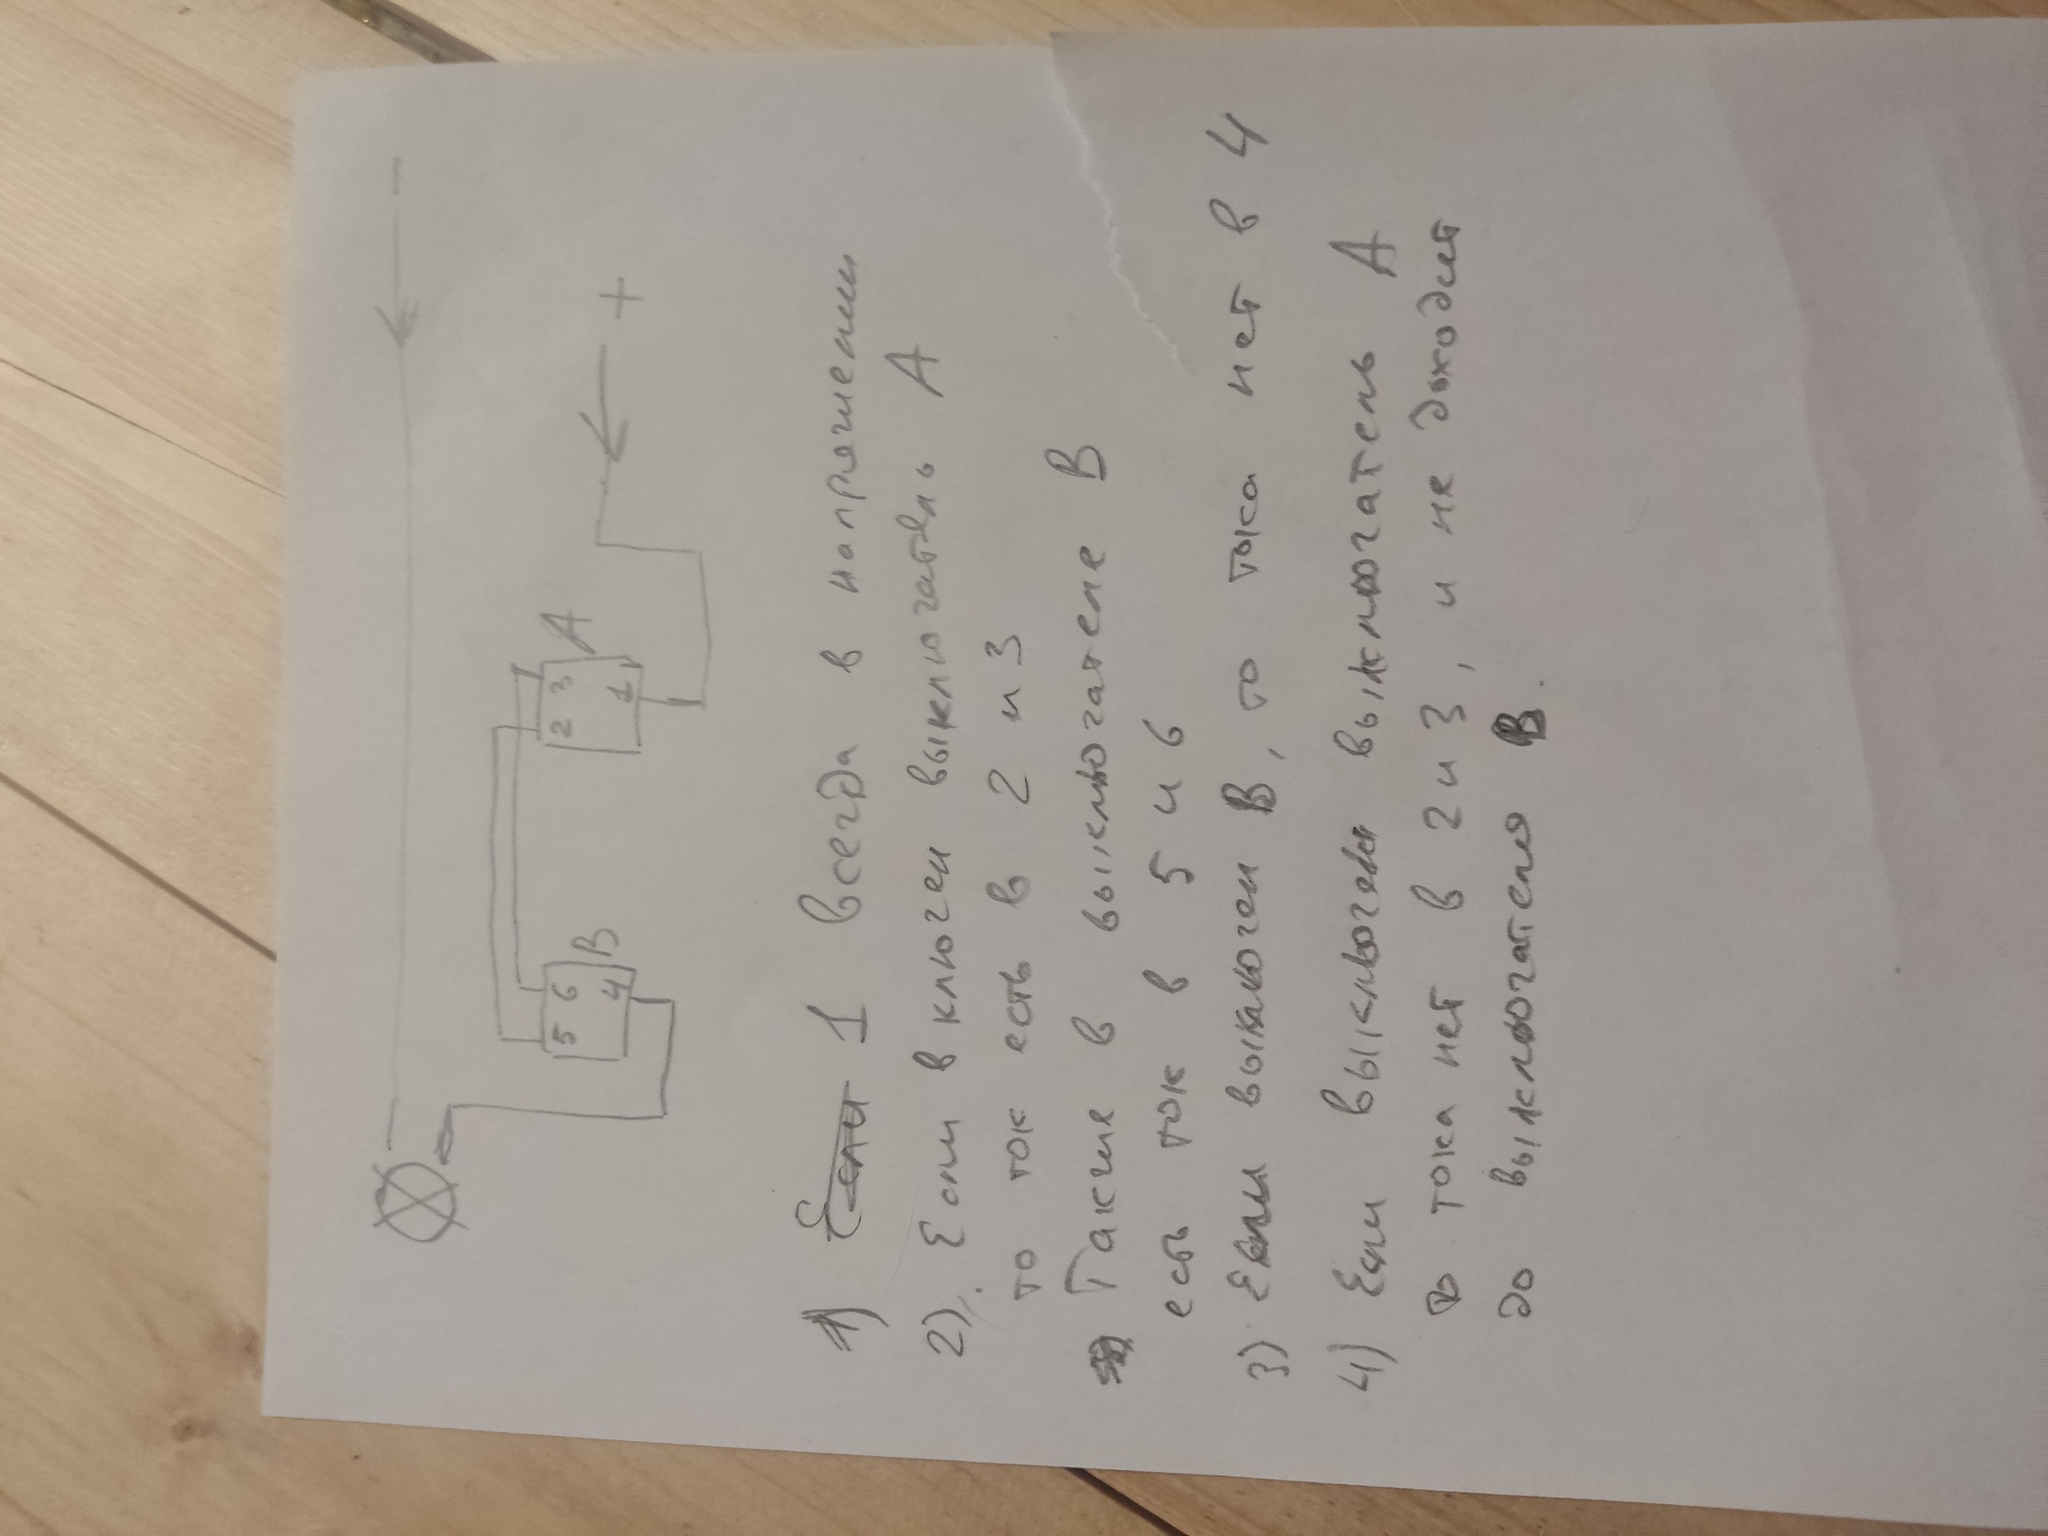 −
+
2 3 A
1
5 6
4 B
1) Если 1 всегда в напряжении
2). Если включен выключатель А
то ток есть в 2 и 3
Также в выключателе В
есть ток в 5 и 6
3) Если выключен В, то тока нет в 4
4) Если выключен выключатель А
то тока нет в 2 и 3, и не доходит
до выключателя В.